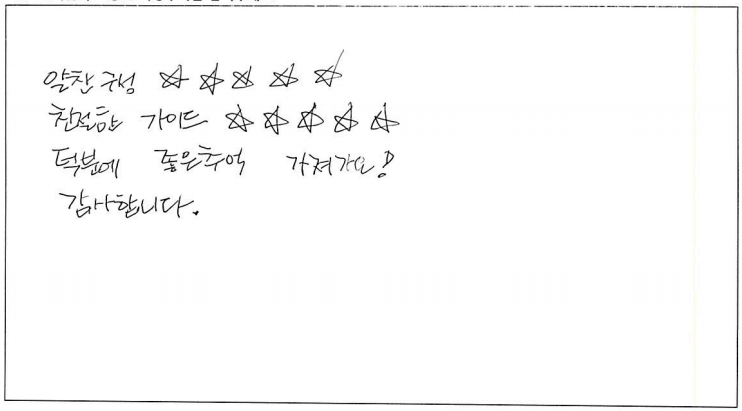 알찬 구성 ☆ ☆ ☆ ☆ ☆
친절한 가이드 ☆ ☆ ☆ ☆ ☆
덕분에 좋은추억 가져가요!
감사합니다.